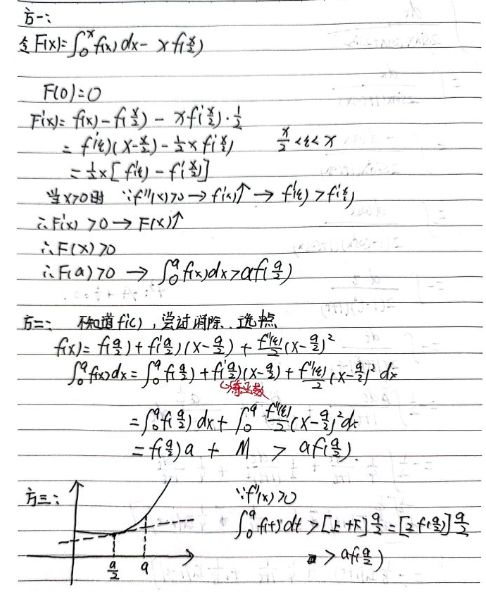 方一：
令F(x)=∫₀ˣ f(x)dx - x f(x/2)
F(0)=0
F'(x)= f(x)-f(x/2) - x f'(x/2)·1/2
= f'(ξ)(x-x/2) - 1/2 x f'(x/2)  x/2<ξ<x
= 1/2 x [f'(ξ) - f'(x/2)]
当x>0时 ∵f''(x)>0 → f'(x)↑ → f'(ξ) > f'(x/2)
∴F'(x) >0 → F(x)↑
∴F(x)>0
∴F(a)>0 → ∫₀ᵃ f(x)dx > a f(a/2)
方二： 不知道f'( ), 尝试消除、选点
f(x)= f(a/2) + f'(a/2)(x-a/2) + f''(ξ)/2 (x-a/2)²
∫₀ᵃ f(x)dx = ∫₀ᵃ f(a/2) + f'(a/2)(x-a/2) + f''(ξ)/2 (x-a/2)² dx
奇函数
= ∫₀ᵃ f(a/2) dx + ∫₀ᵃ f''(ξ)/2 (x-a/2)² dx
= f(a/2) a + M > a f(a/2)
方三：
∵f''(x)>0
∫₀ᵃ f(t)dt > [上+下] a/2 = [2f(a/2)] a/2
> a f(a/2)
a/2 a